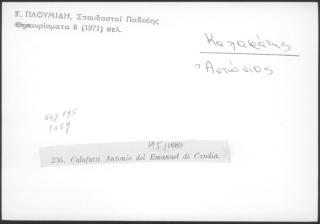 Γ. ΠΛΟΥΜΙΔΗ, Σπουδασταί Παδούης
Θησαυρίσματα 8 (1971) σελ.
Καλαφάτης
Ἀντώνιος
σελ 195
1689
195/1689
236. Calafatti Antonio del Emanuel di Candia.